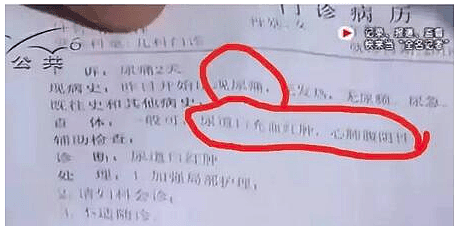 门诊病历
记录、报道、监督
快来当“全名记者”
公共
科室:儿科门诊
性别:女
诉:尿痛2天
现病史:昨日开始出现尿痛,无发热,无尿频、尿急。
既往史和其他病史:
查体:一般可,尿道口充血红肿,心肺腹阴性
辅助检查:
诊 断:尿道口红肿
处 理:1.加强局部护理;
2.请妇科会诊;
3.不适随诊。